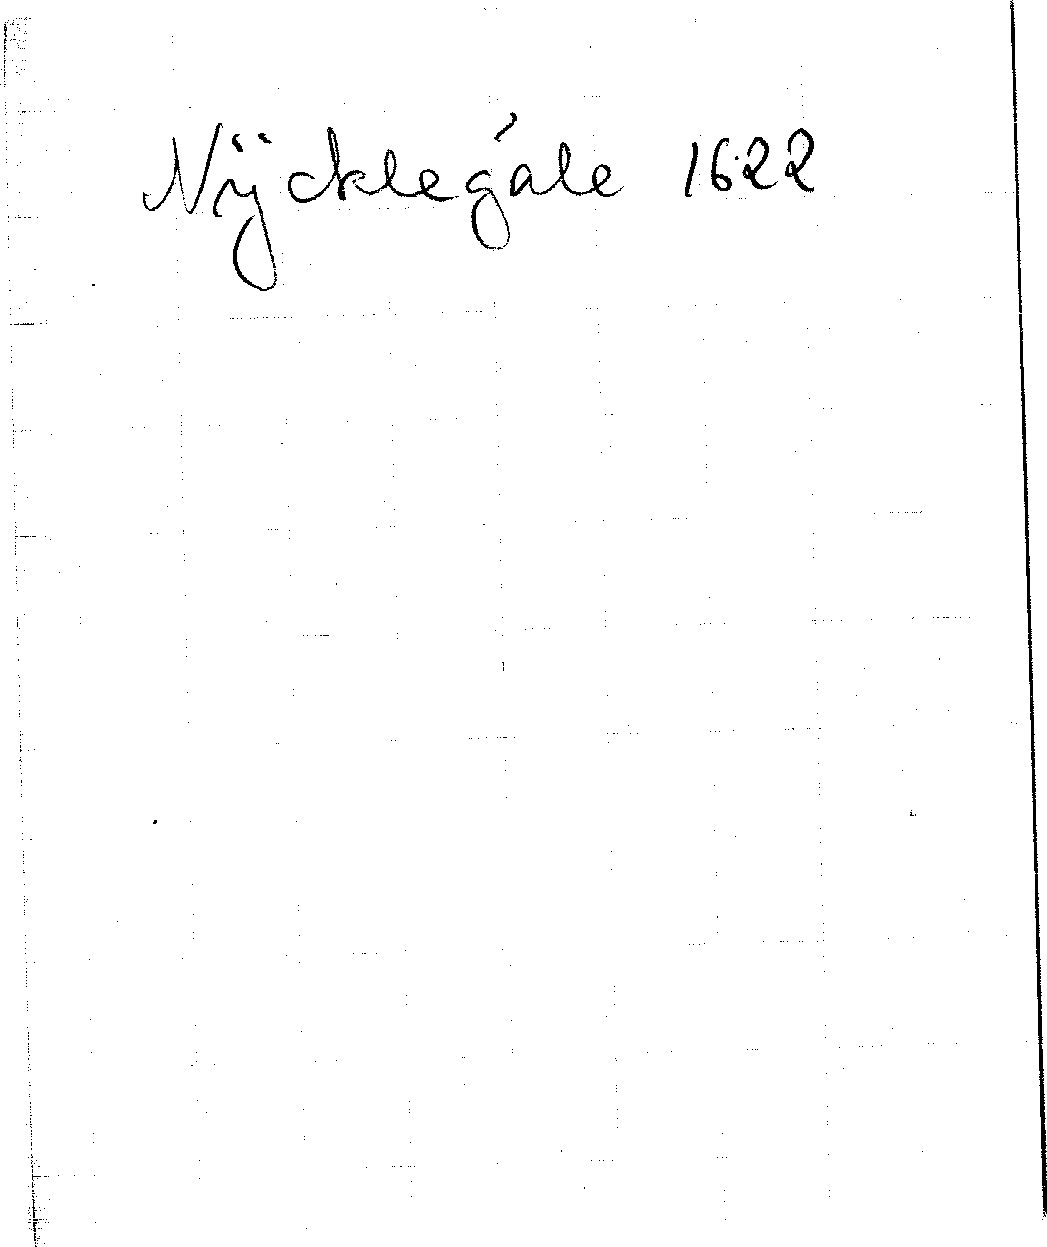 Nÿcklegåle 1622